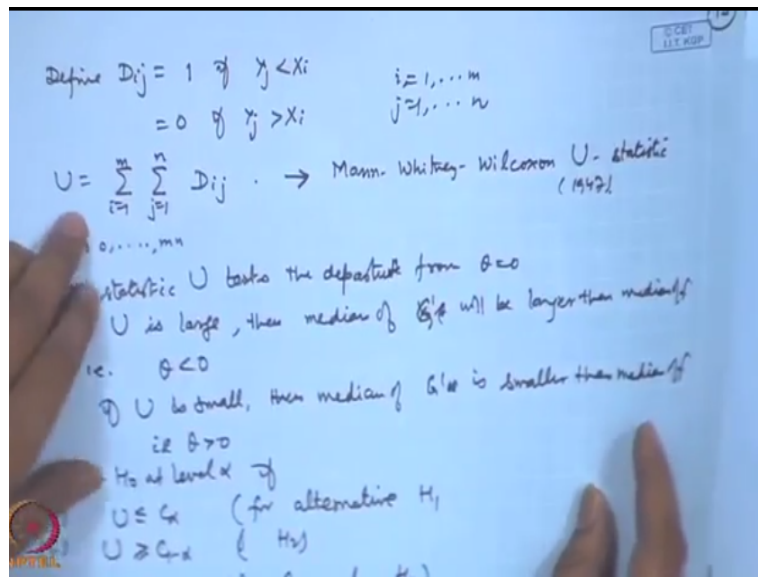 C CET
I.I.T. KGP
Define Dij = 1 if Yj < Xi i = 1, ... m
= 0 if Yj > Xi j = 1, ... n
U = m∑i=1 n∑j=1 Dij . → Mann-Whitney-Wilcoxon U-statistic
(1947)
0, ...., mn
statistic U tests the departure from θ=0
U is large, then median of will be larger than median of
i.e. θ<0
If U is small, then median of is smaller than median of
ie θ>0
H0 at level α if
U ≤ Cα (for alternative H1
U ≥ C1-α ( H2)
NPTEL